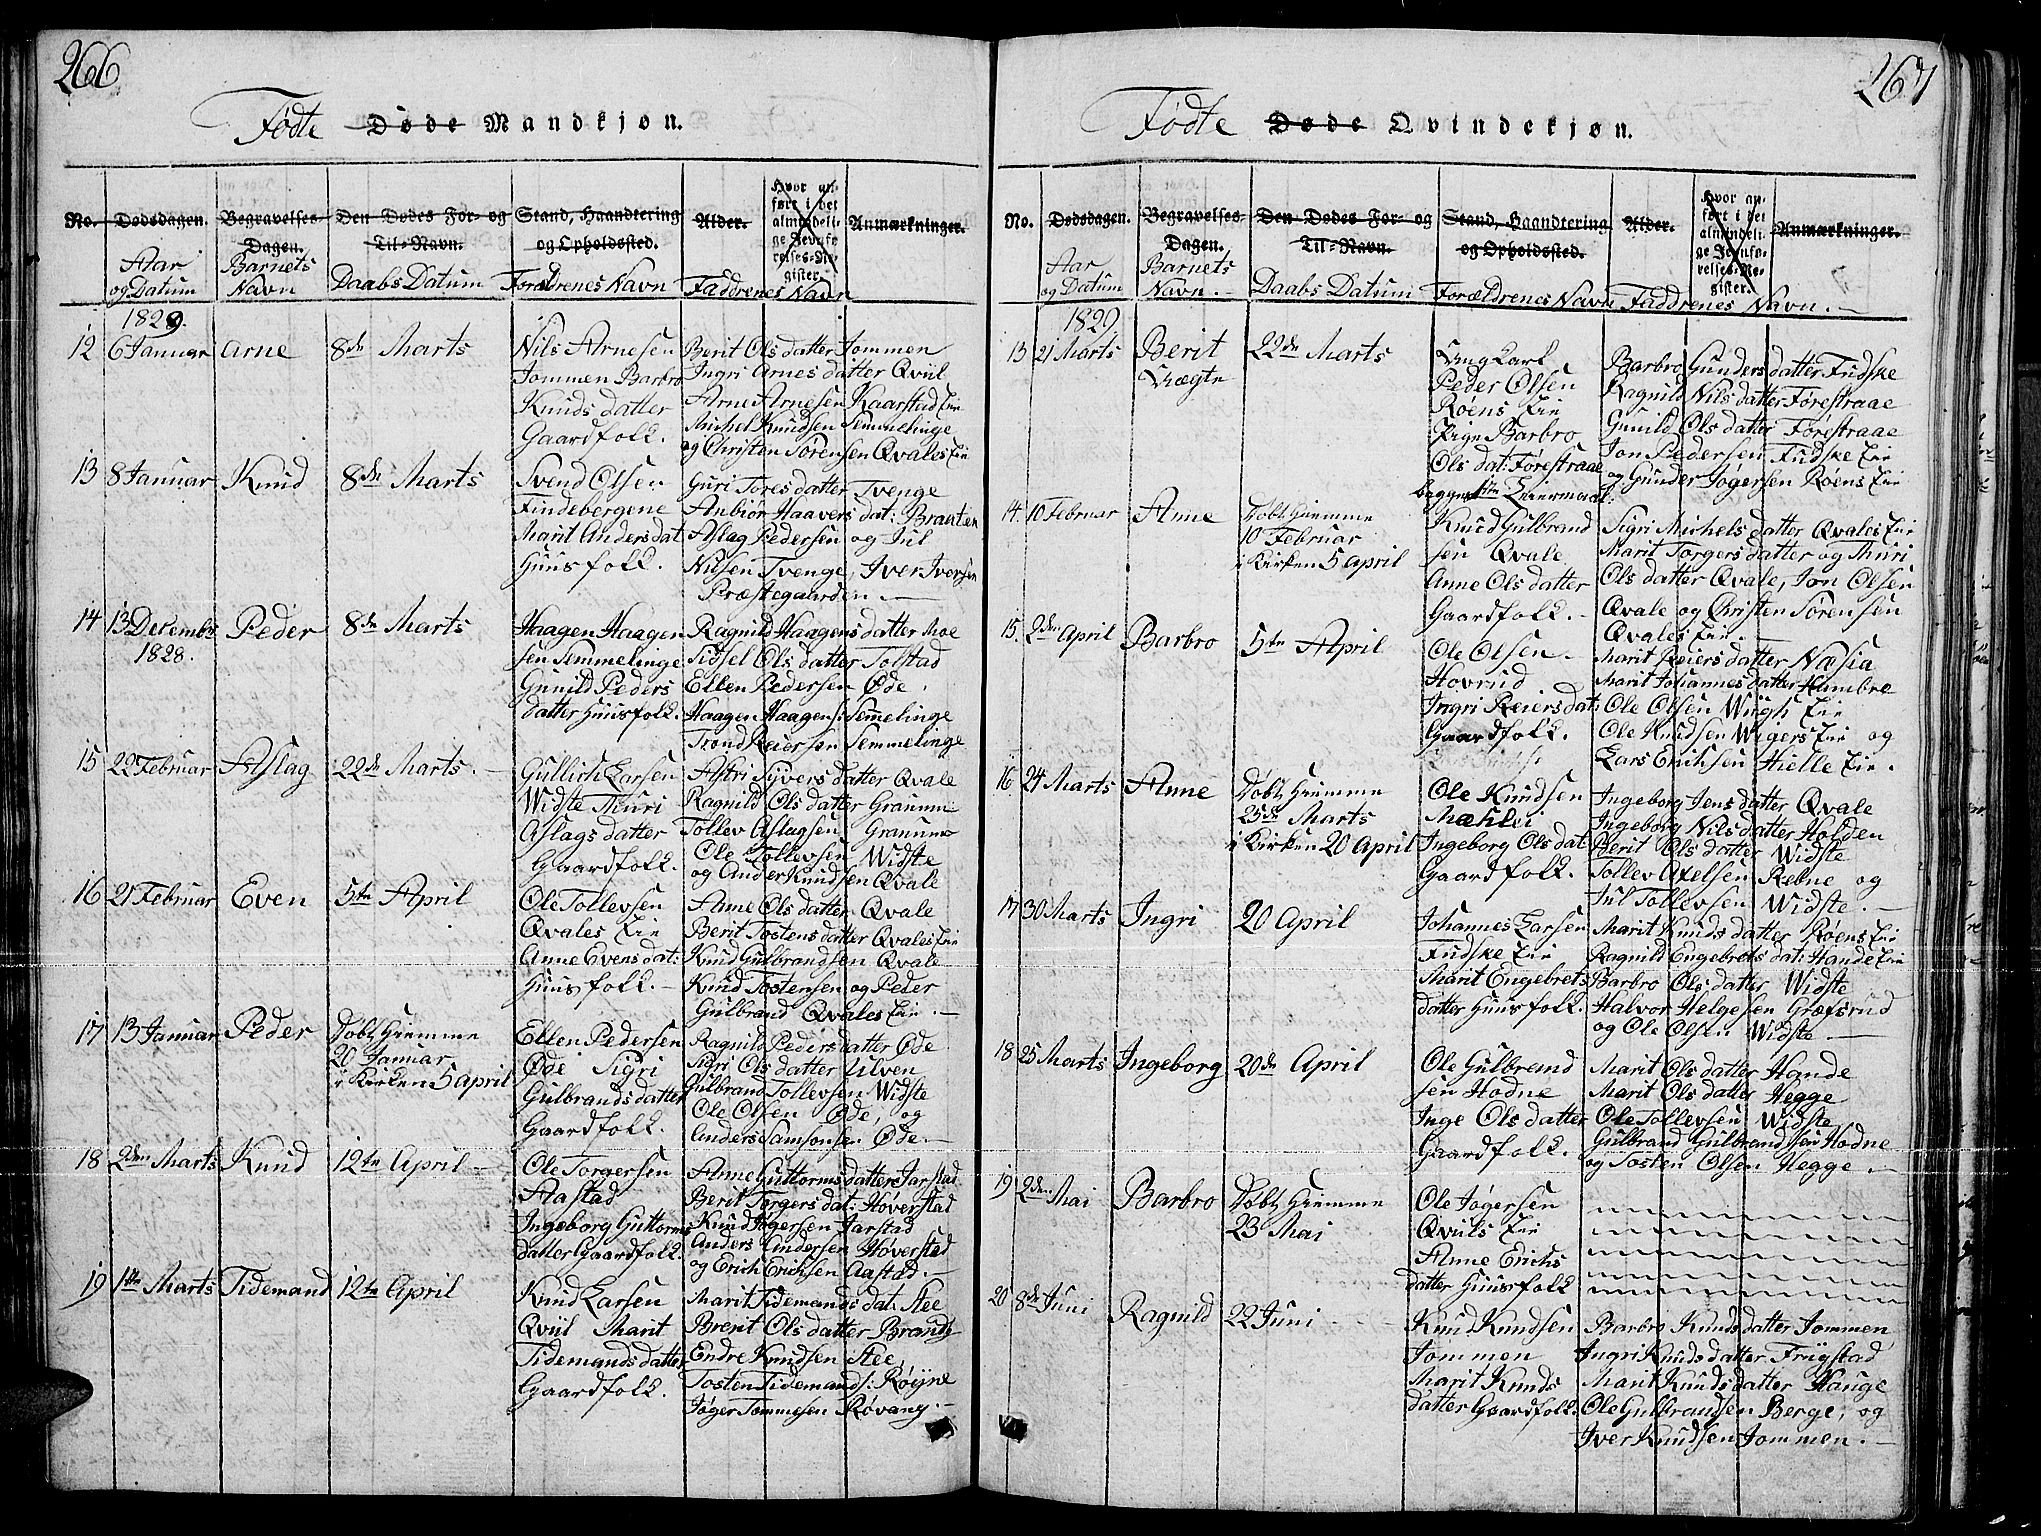 266
Födte Døde Mandkjøn.
No. Dødsdagen. Begravelses-Dagen. Den Dødes For- og Til-Navn. Stand, Haandtering og Opholdssted. Alder. Hvor anført i det almindelige Jevnførelses-Register. Anmærkninger.
Aar og Datum Barnets Navn Daabs Datum Forældrenes Navn Faddrenes Navn
1829.
12 6 Januar Arne 8de Marts
Nils Arnesen
Jommen Barbro
Knuds datter
Gaardfolk.
Berit Olsdatter Jommen
Ingri Arnes datter Qviil
Arne Arnesen Kaarstad Eie
Michel Knudsen Semmelinge
og Christen Sörensen Qvales Eie
13 8 Januar Knud 8de Marts
Svend Olsen
Findebergene
Marit Anders dat
Huusfolk.
Guri Tores datter Tvenge
Anbiör Haavers dat: Branten
Aslag Pedersen og Jul
Nilsen Tvenge, Iver Iversen
Præstegaarden.
14 13 Decembr 1828. Peder 8de Marts
Haagen Haagen
sen Semmelinge
Gunild Peders
datter Huusfolk.
Ragnild Haagens datter Moe
Sidsel Ols datter Tolstad
Ellen Pedersen Øde.
Haagen Haagens: Semmelinge
Trond Reiersen Semmelinge
15 22 Februar Aslag 22de Marts.
Gullich Larsen
Widste Thuri
Aslags datter
Gaardfolk.
Astri Syvers datter Qvale
Ragnild Ols datter Graunm
Tollev Aslagsen Graunm
Ole Tollevsen Widste
og Ander Knudsen Qvale
16 21 Februar Even 5te April
Ole Tollevsen
Qvales Eie
Anne Evens dat:
Huusfolk.
Anne Ols datter Qvale
Berit Tostens datter Qvales Eie
Knud Gulbrandsen Qvale
Knud Tostensen og Peder
Gulbrand Qvales Eie.
17 13 Januar Peder Döbt Hiemme
20 Januar
i Kirken 5 April
Ellen Pedersen
Øde Sigri
Gulbrands datter
Gaardfolk.
Ragnild Peders datter Øde
Sigri Ols datter Ulven
Gulbrand Tollevsen Widste
Ole Olsen Øde, og
Anders Samsonsen Øde.
18 2den Marts Knud 12te April
Ole Torgersen
Aastad
Ingeborg Guttorms
datter Gaardfolk.
Anne Guttorms datter Jarstad
Berit Torgers dat: Höverstad
Knud Jögersen Jarstad
Anders Andersen Höverstad
og Erich Erichsen Aastad.
19 1ste Marts Tidemand 12te April
Knud Larsen
Qviil Marit
Tidemands datter
Gaardfolk.
Marit Tidemands dat: Stee
Brerit Ols datter Brands
Endre Knudsen Stee
Tosten Tidemands: Röyne
Jöger Tommesen Rövang.
267
Födte Døde Qvindekjøn.
No. Dødsdagen. Begravelses-Dagen. Den Dødes For- og Til-Navn. Stand, Haandtering og Opholdssted. Alder. Hvor anført i det almindelige Jevnførelses-Register. Anmærkninger.
Aar og Datum Barnets Navn. Daabs Datum Forældrenes Navn Faddrenes Navn.
1829
13 21 Marts Berit 22de Marts
Uægte
Ung Karl
Peder Olsen
Röens Eie
Pige Barbro
Ols dat: Förestraae
begges 1ste Leiermaal:
Barbro Gunders datter Fudske
Ragnild Nils datter Förestraae
Gunild Ols datter Förestraae
Jon Pedersen Fudske Eie
og Gunder Jögersen Röens Eie
14. 10 Februar Anne Döbt Hiemme
10 Februar
i Kirken 5 April
Knud Gulbrand
sen Qvale
Anne Ols datter
Gaardfolk.
Sigri Michels datter Qvales Eie
Marit Torgers datter og Thuri
Ols datter Qvale, Jon Olsen
Qvale og Christen Sörensen
Qvales Eie.
15. 2den April Barbro 5te April
Ole Olsen
Hovrud
Ingri Reiers dat:
Gaardfolk.
Marit Reiers datter Næsia
Marit Johannes datter Humbre
Ole Olsen Wiigh Eie
Ole Knudsen Wigers Eie og
Lars Erichsen Hielle Eie.
16 24 Marts Anne Döbt Hiemme
25de Marts
i Kirken 20 April
Ole Knudsen
Mæhlei
Ingeborg Ols dat:
Gaardfolk.
Ingeborg Jens datter Qvale
Ingeborg Nils datter Holden
Berit Ols datter Widste
Tollev Axelsen Rebne og
Jul Tollevsen Widste.
17 30 Marts Ingri 20 April
Johannes Larsen
Fudske Eie
Marit Engebrets
datter Huusfolk.
Marit Knuds datter Röens Eie
Ragnild Engebrets dat: Hande Eie
Barbro Ols datter Widste
Halvor Helgesen Græfsrud
og Ole Olsen Widste
18 25 Marts Ingeborg 20de April
Ole Gulbrand
sen Hodne
Inge Ols datter
Gaardfolk.
Marit Ols datter Hande
Marit Ols datter Hegge
Ole Tollevsen Widste
Gulbrand Gulbrandsen Hodne
og Tosten Olsen Hegge.
19 2den Mai Barbro Döbt Hiemme
23 Mai
Ole Jögersen
Qviils Eie
Anne Erichs
datter Huusfolk
20 8de Juni Ragnild 22 Juni
Knud Knudsen
Jommen
Marit Knuds
datter Gaardfolk.
Barbro Knuds datter Jommen
Ingri Knuds datter Frügstad
Marit Knuds datter Hauge
Ole Gulbrandsen Berge, og
Iver Knudsen Jommen.